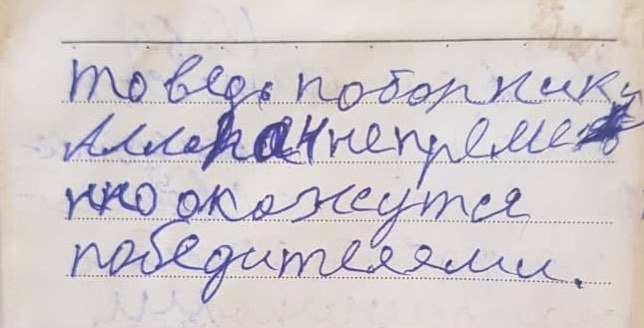 то ведь поборники
Аллаха непреме
нно окажутся
победителями.